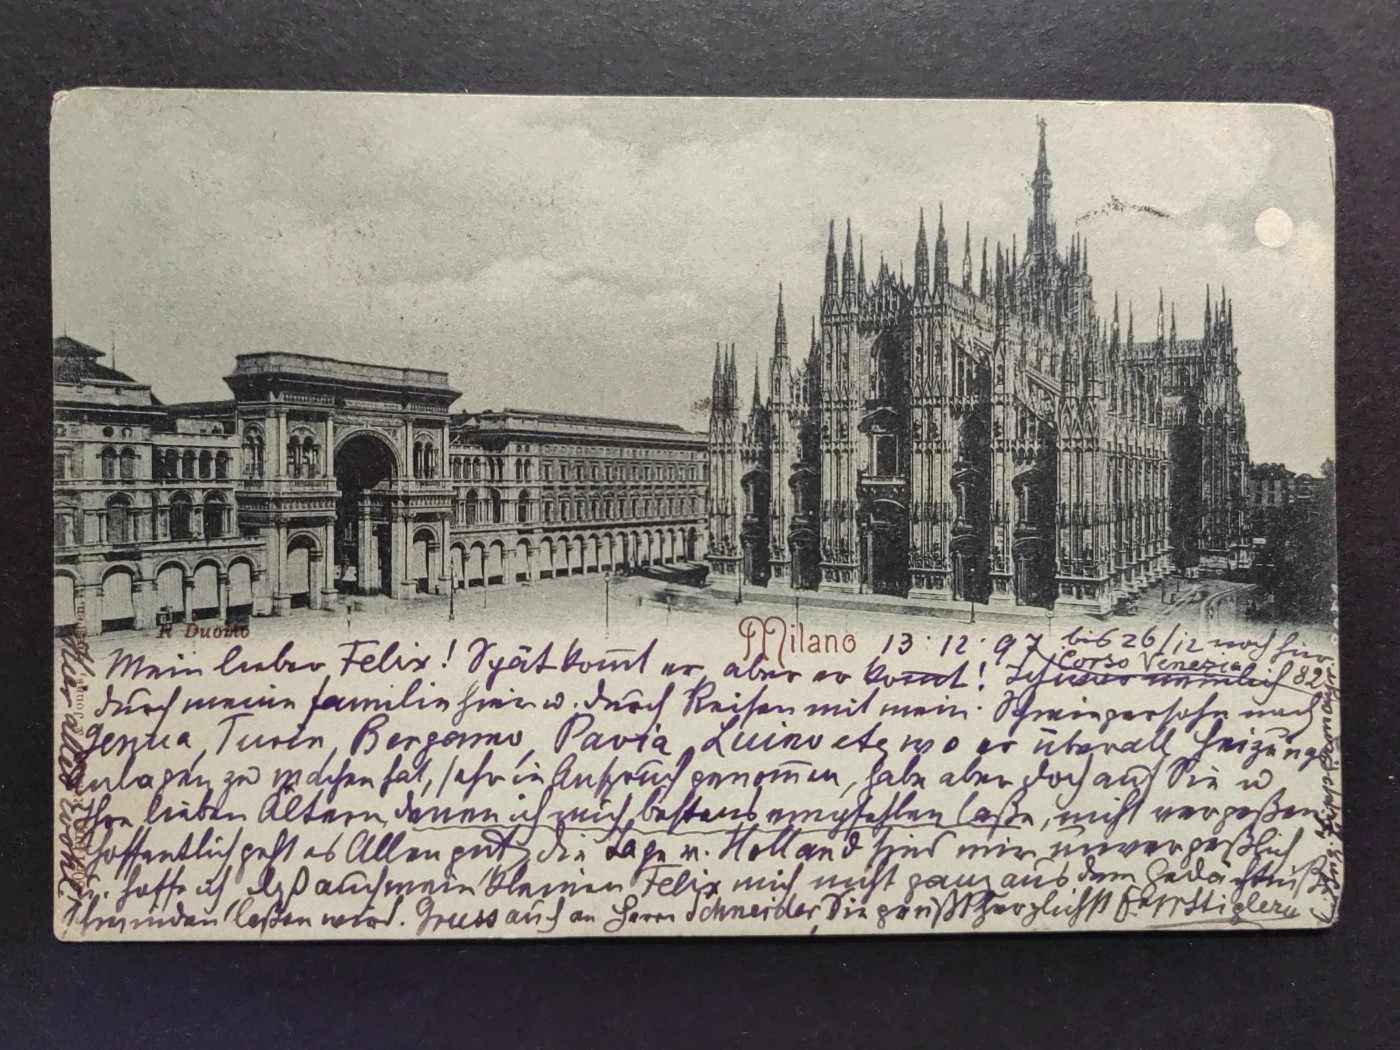 Il Duomo
Milano
13.12.97 bis 26/12 noch hier
Corso Venezia 82
Mein lieber Felix! Spät kom̅t er, aber er kom̅t! Ich war nämlich
durch meine Familie hier u. durch Reisen mit mein. Schwiegersohn nach
Genua, Turin, Bergamo, Pavia, Luino etc wo er überall Heizungs
anlagen zu machen hat, sehr in Anspruch genom̅en, habe aber doch auch Sie u
Ihre lieben Ältern, denen ich mich bestens empfehlen laße, nicht vergeßen
hoffentlich geht es Allen gut, die Tage v. Holland sind mir unvergeßlich
u. hoffe ich daß auch mein kleiner Felix mich nicht ganz aus dem Gedächtniß
schwinden laßen wird. Gruss auch an Herrn Schneider, Sie grüßt herzlichst